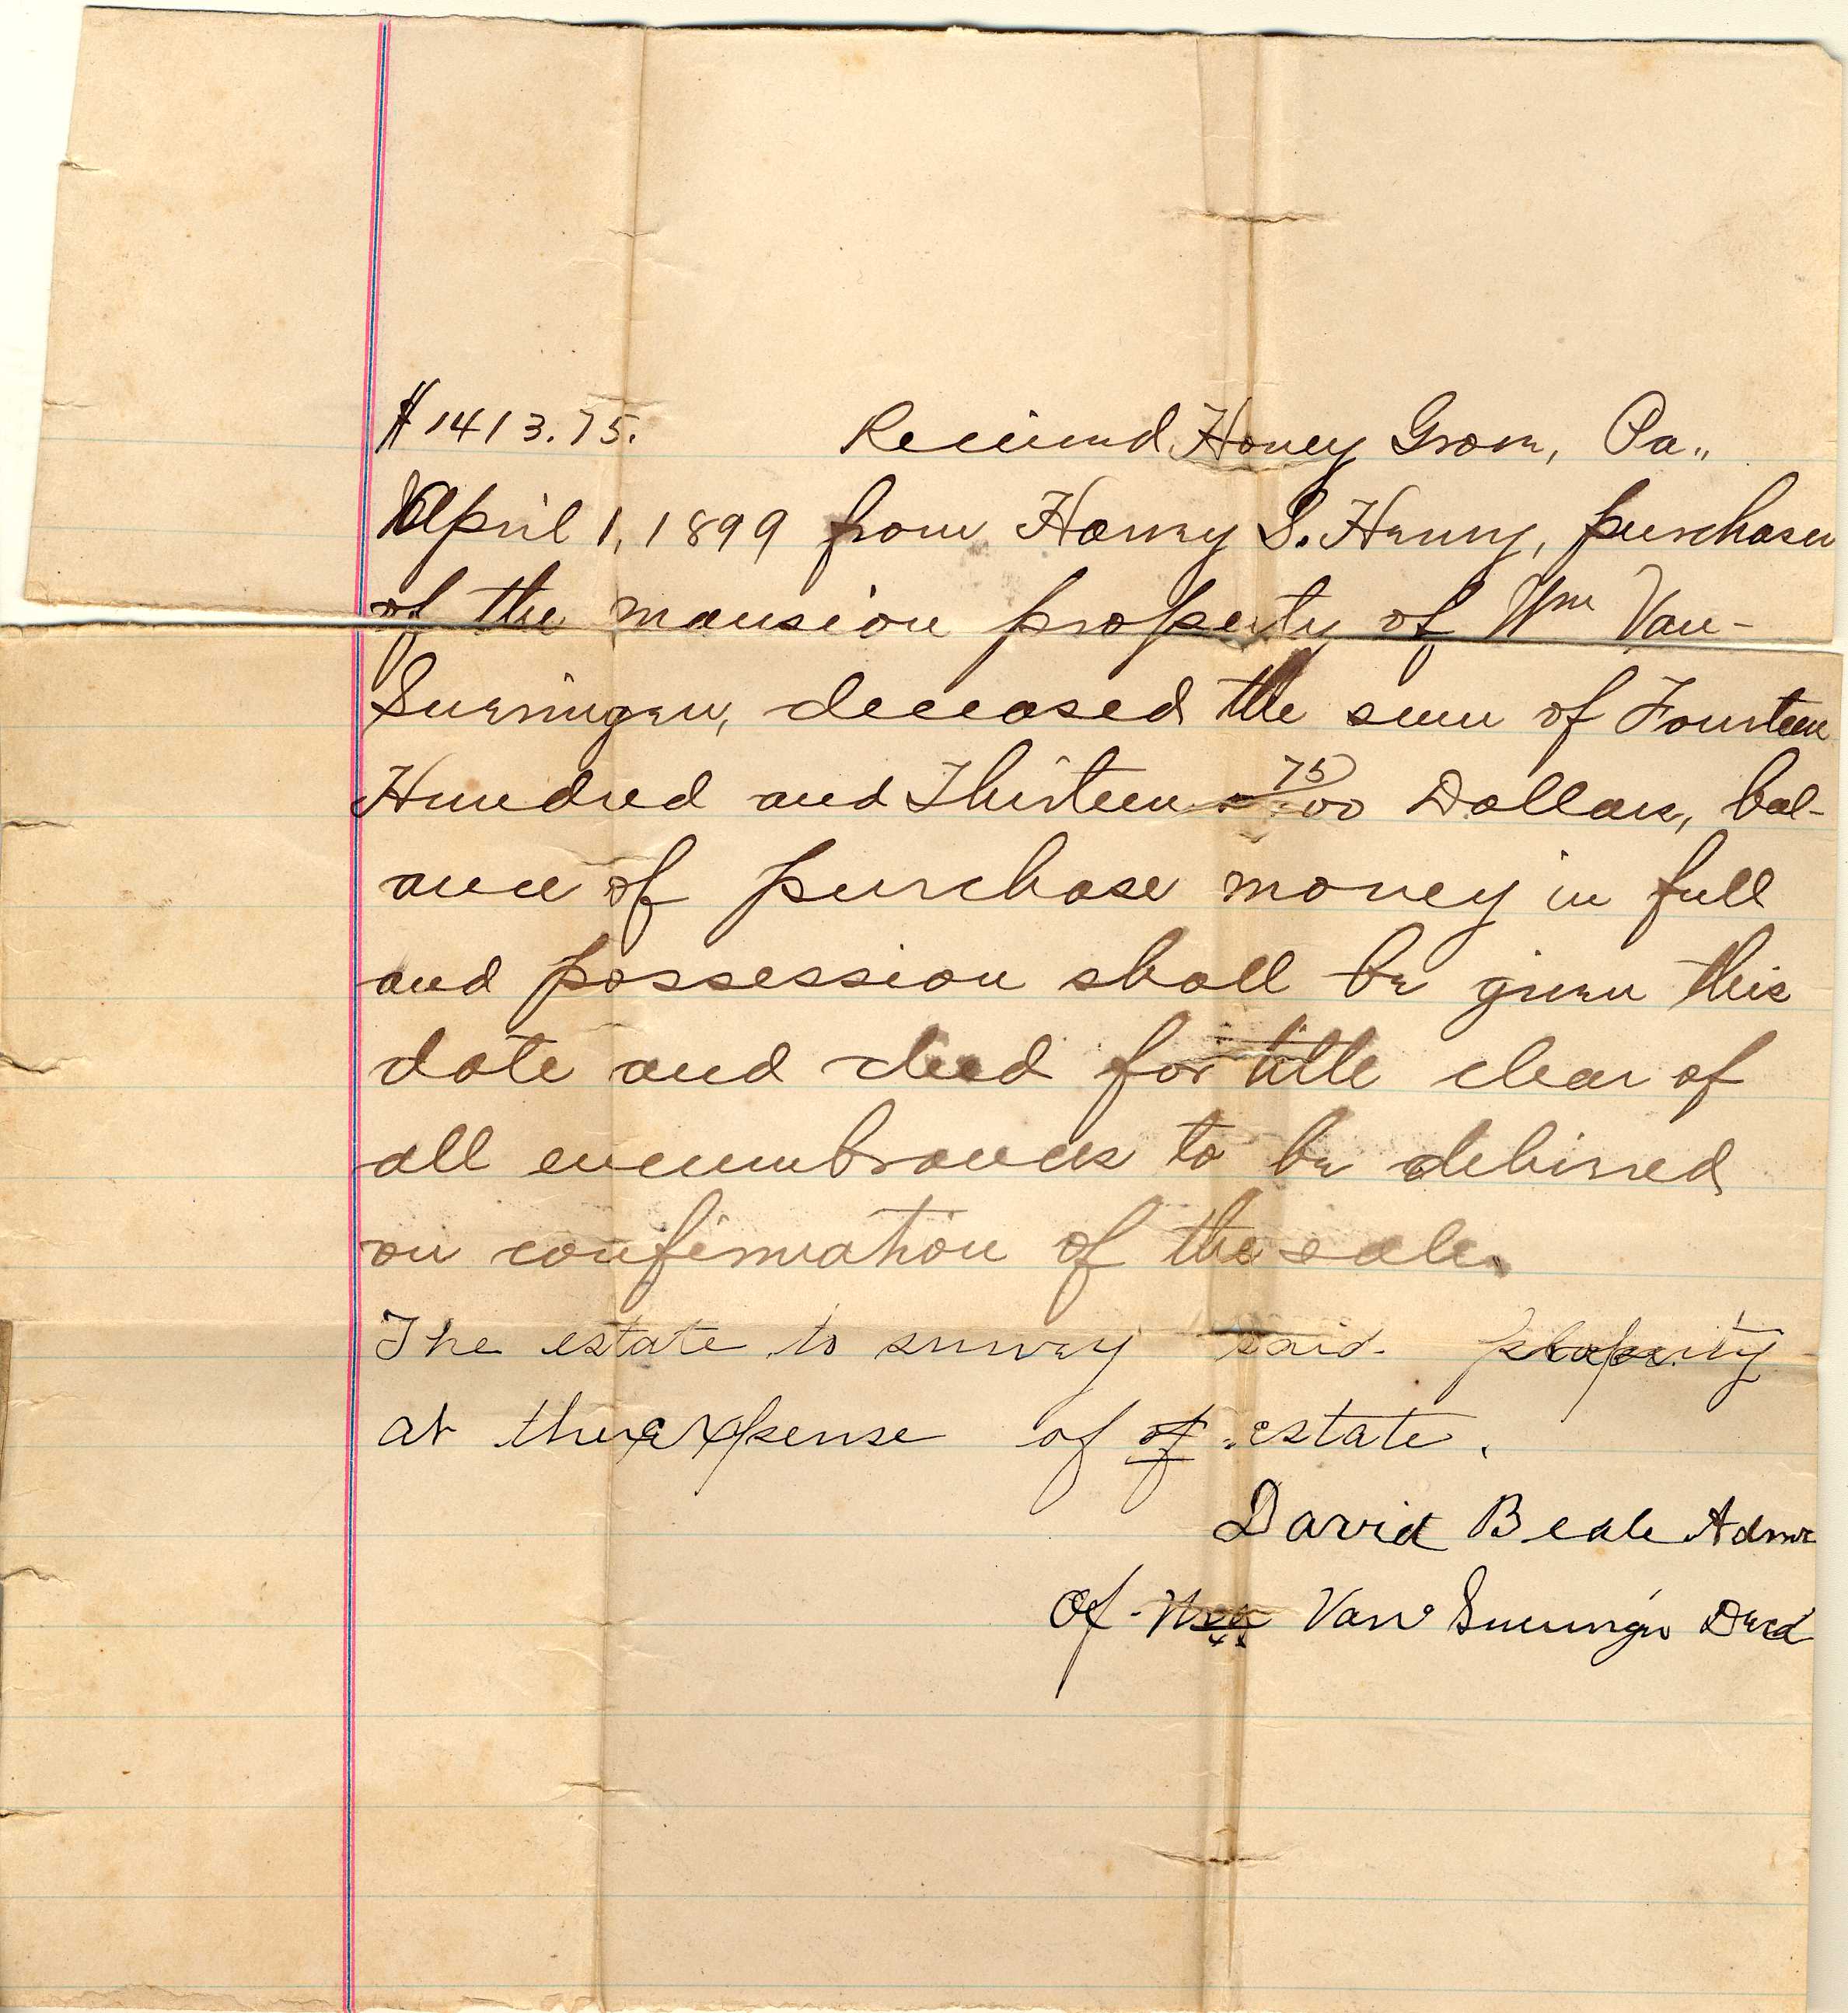 $1413.75. Received Honey Grove, Pa.,
April 1, 1899 from Harvey S. Henry, purchaser
of the mansion property of Wm Van-
Sweringen, deceased the sum of Fourteen
Hundred and Thirteen 75/100 Dollars, bal-
ance of purchase money in full
and possession shall be given this
date and deed for title clear of
all encumbrances to be delivred
on confirmation of the sale.
The estate to survey said property
at the expense of of estate.
David Beale Admr
of Wm Van Sweringen Decd